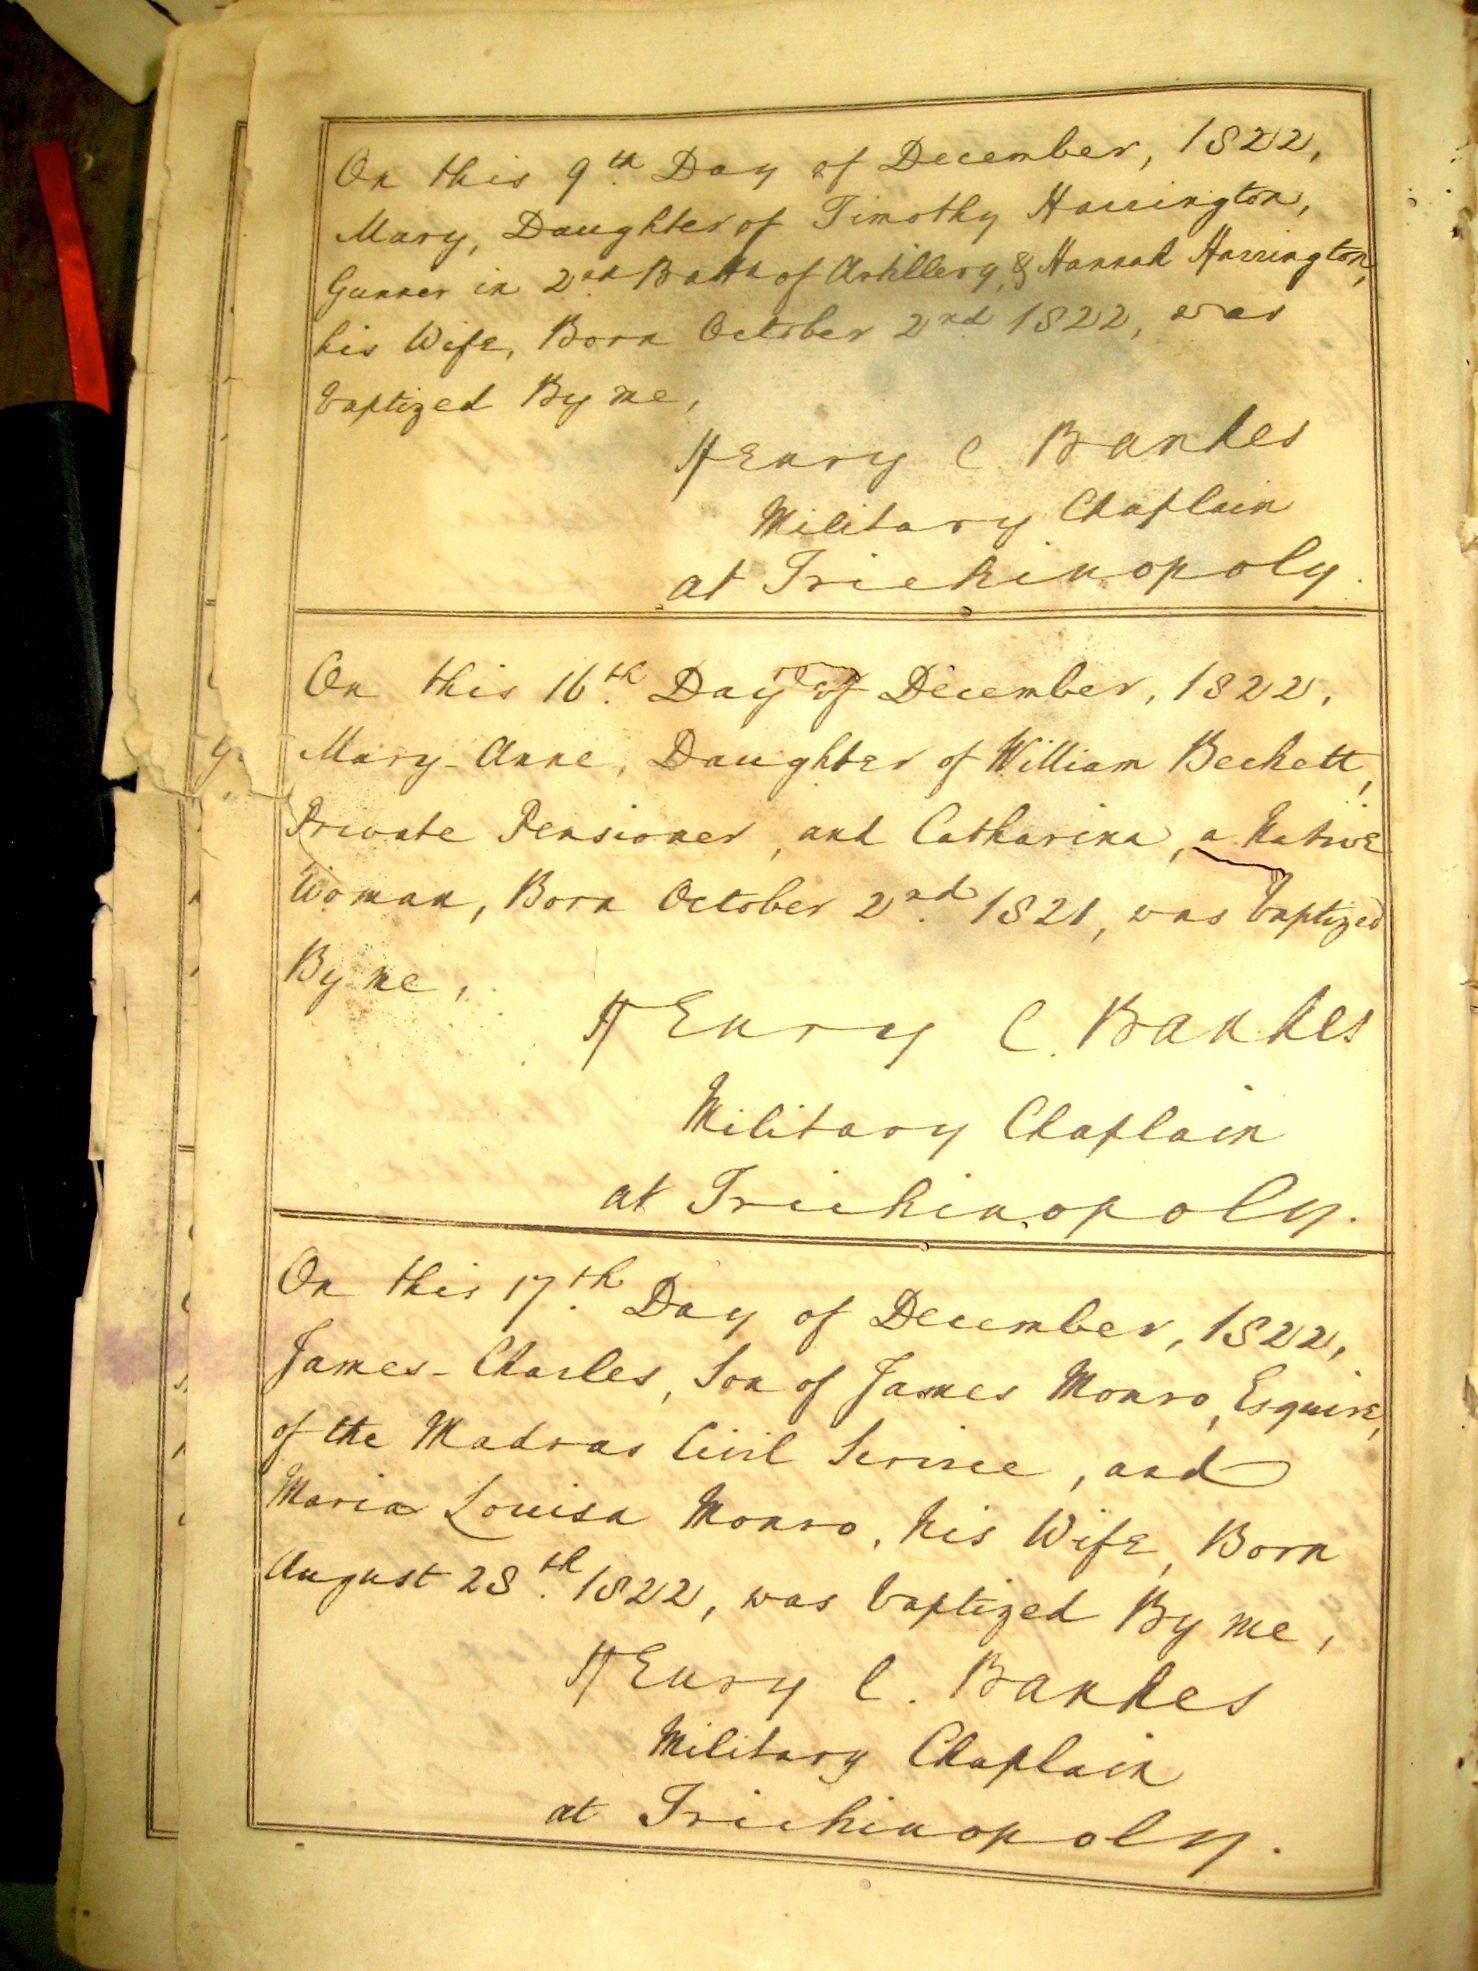 On this 9th Day of December, 1822,
Mary, Daughter of Timothy Harrington,
Gunner in 2nd Battn of Artillery, & Hannah Harrington,
his Wife, Born October 2nd 1822, was
baptized By me,
Henry C Bankes
Military Chaplain
at Trichinopoly.
On this 16th Day of December, 1822,
Mary-Anne, Daughter of William Beckett,
Private Pensioner, and Catharina, a Native
Woman, Born October 2nd 1821, was baptized
By me,
Henry C. Bankes
Military Chaplain
at Trichinopoly.
On this 17th Day of December, 1822,
James-Charles, Son of James Monro, Esquire,
of the Madras Civil Service, and
Maria Louisa Monro, his Wife, Born
August 28th 1822, was baptized By me,
Henry C. Bankes
Military Chaplain
at Trichinopoly.